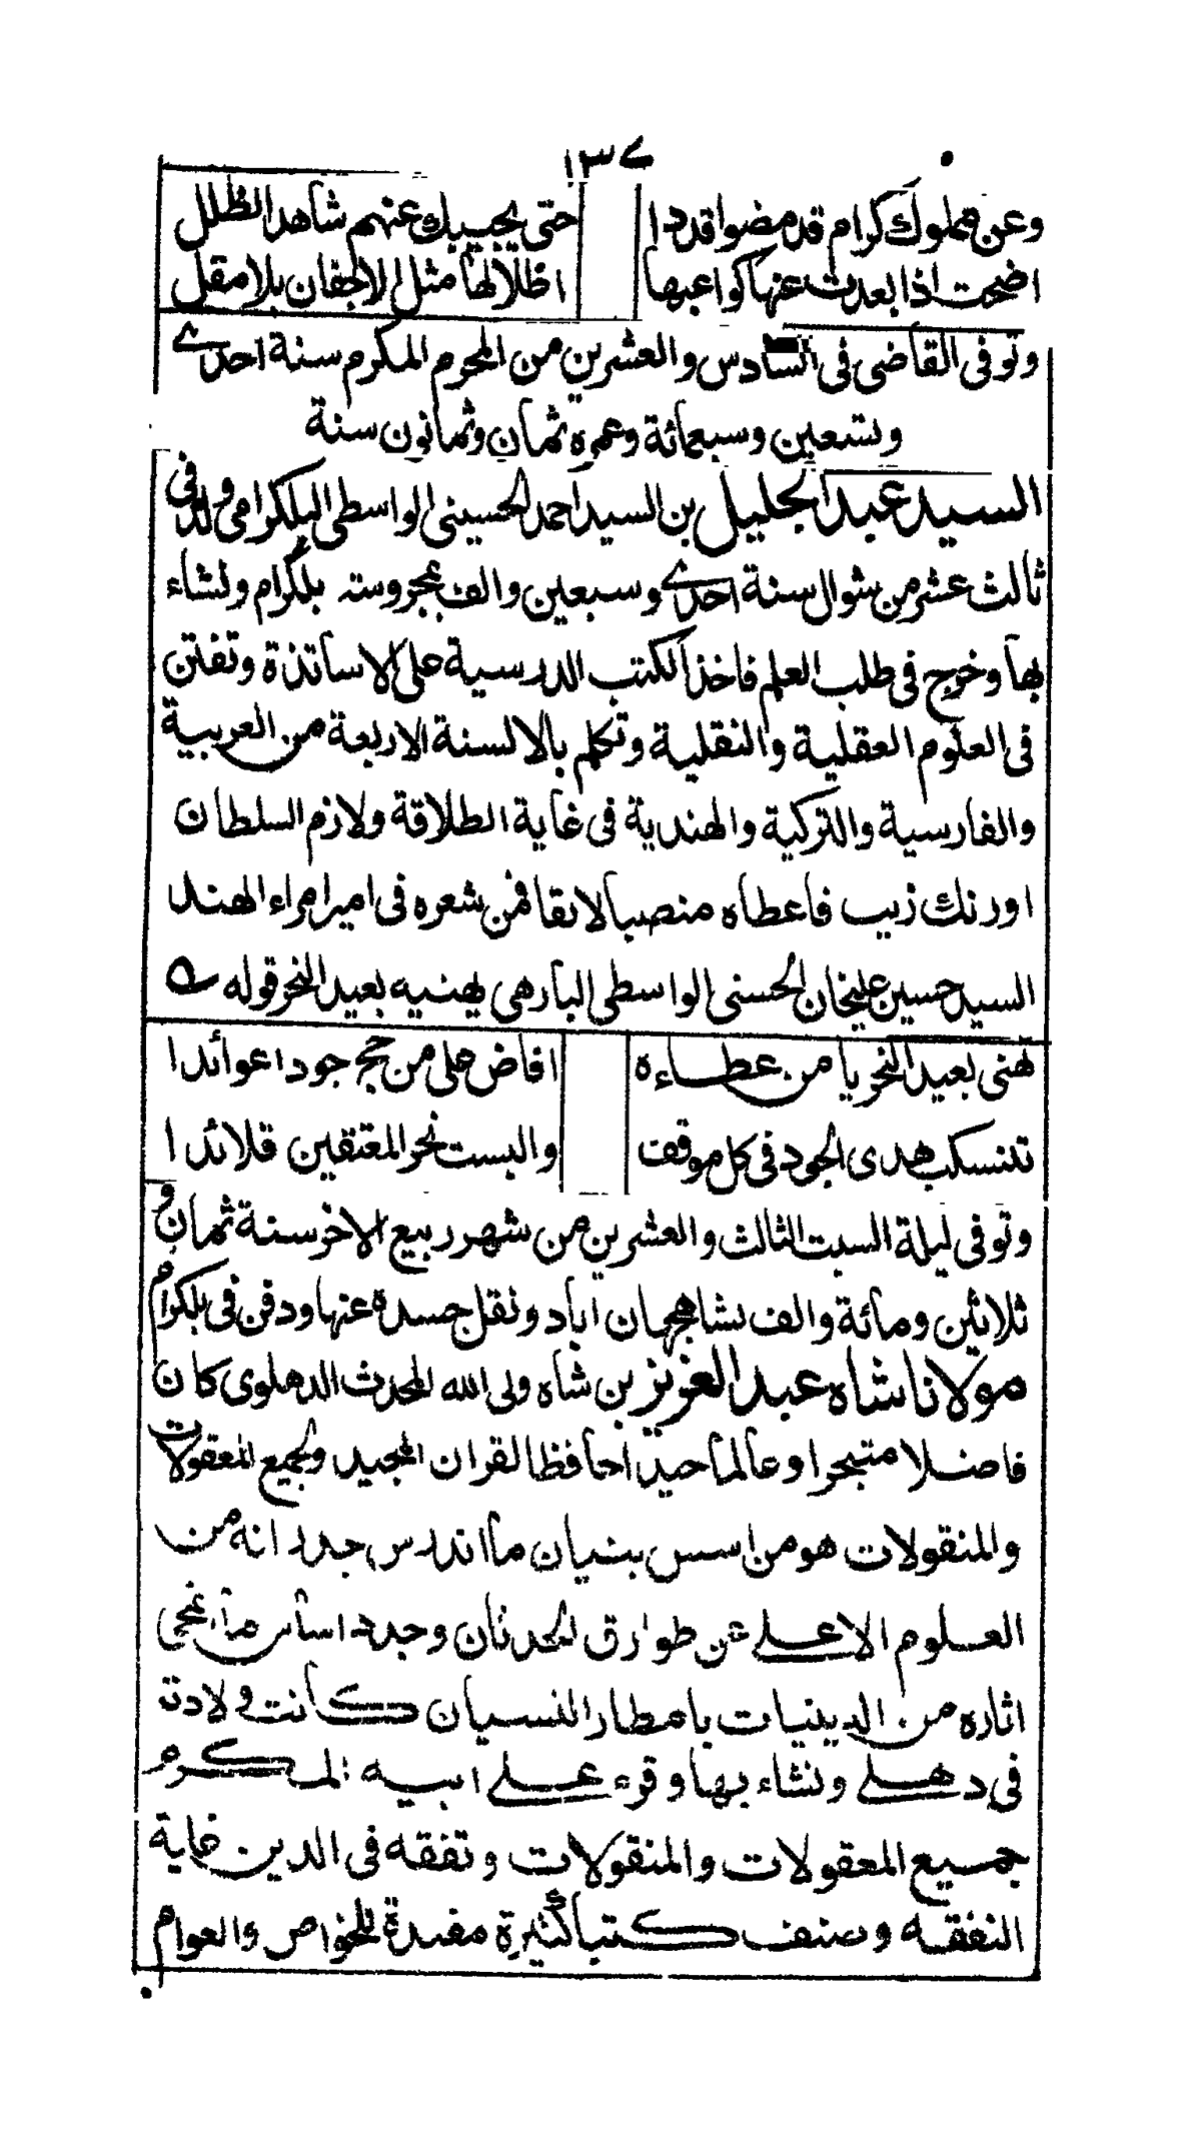 ١٣٧
وعن ملوك كرام قد مضوا قددا حتى يجيبك عنهم شاهد الطلل
اضحت اذا بعدت عنها كواعبها اظلالها مثل الاجفان بلا مقل
وتوفى القاضى فى السادس والعشرين من المحرم المكرم سنة احدے
وتسعين وسبعمائة وعمره ثمان وثمانون سنة
السيد عبد الجليل بن السيد احمد الحسينى الواسطى البلكرامى ولد فى
ثالث عشر من شوال سنة احدے وسبعين والف بمحروسته بلكرام ونشاء
بها وخرج فى طلب العلم فاخذ الكتب الدرسية على الاساتذة وتفنن
فى العلوم العقلية والنقلية وتكلم بالالسنة الاربعة من العربية
والفارسية والتركية والهندية فى غاية الطلاقة ولازم السلطان
اورنك زيب فاعطاه منصبا لائقا فمن شعره فى امير امراء الهند
السيد حسين عليخان الحسنى الواسطى البارهى يهنيه بعيد النحر قوله ە
تهنى بعيد النحر يا من عطاءه افاض على من حج جودا عوائدا
تنسكت هدى الجود فى كل موقف والبست نحر المعتقين قلائدا
وتوفى ليلة السبت الثالث والعشرين من شهر ربيع الاخر سنة ثمان و
ثلاثين ومائة والف بشاهجهان اباد ونقل جسده عنها ودفن فى بلكرام
مولانا شاه عبد العزيز بن شاه ولى الله المحدث الدهلوى كان
فاضلا متبحرا وعالما جيدا حافظا لقران المجيد ولجميع المعقولات
والمنقولات هو من اسس بنيان ما اندرس جدرانه من
العلوم الاعلے عن طوارق الحدثان وجدد اساس ما انمحى
اثاره من الدينيات بامطار النسيان كانت ولادته
فى دهلے ونشاء بها وقرء علے ابيه المكرم
جميع المعقولات والمنقولات وتفقه فى الدين غاية
التفقه وصنف كتبا كثيرة مفيدة للخواص والعوام